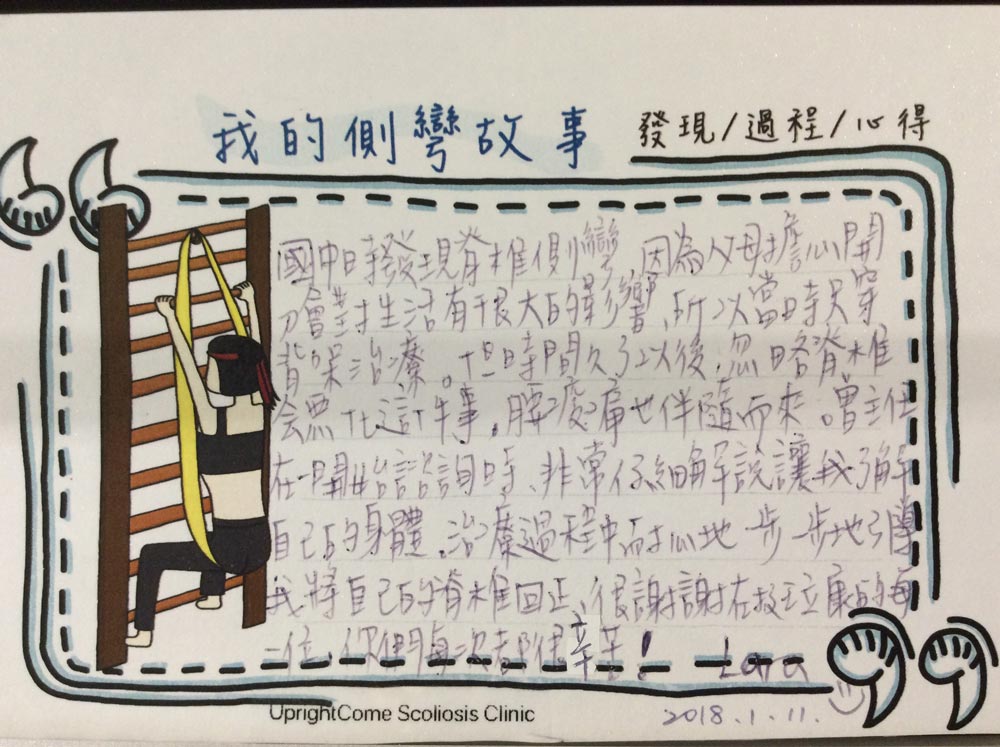 我的側彎故事 發現/過程/心得
國中時發現脊椎側彎,因為父母擔心開
刀會對生活有很大的影響,所以當時只穿
背架治療。但時間久了以後,忽略脊椎
會惡化這件事,腰痠痛也伴隨而來。曾主任
在一開始諮詢時,非常仔細解說讓我了解
自己的身體,治療過程中耐心地一步一步地引導
我將自己的脊椎回正,很謝謝在拔立康的每
一位,你們每次都很辛苦!
Lara
2018.1.11.
UprightCome Scoliosis Clinic